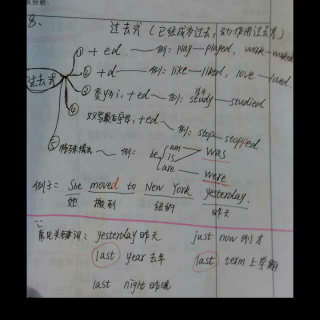 8、 过去式 (已经成为过去, 动作用过去式)
过去式
① + ed — 例: play — played, work — worked
② + d — 例: like — liked, love — loved
③ 变y为i, + ed — 例: study — studied
④ 双写最后字母, + ed — 例: stop — stopped
⑤ 特殊情况 — 例: be am is was
are — were
例子: She moved to New York yesterday.
她 搬到 纽约 昨天
常见关键词: yesterday 昨天 just now 刚才
last year 去年 last term 上学期
last night 昨晚